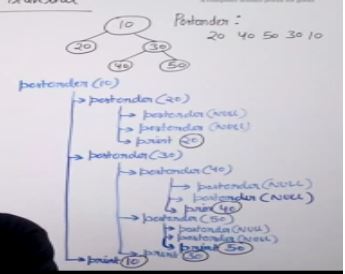 10
Postorder :
20 30
20 40 50 30 10
40 50
postorder (10)
postorder (20)
postorder (NULL)
postorder (NULL)
print 20
postorder (30)
postorder (40)
postorder (NULL)
postorder (NULL)
print 40
postorder (50)
postorder (NULL)
postorder (NULL)
print 50
print 30
print 10